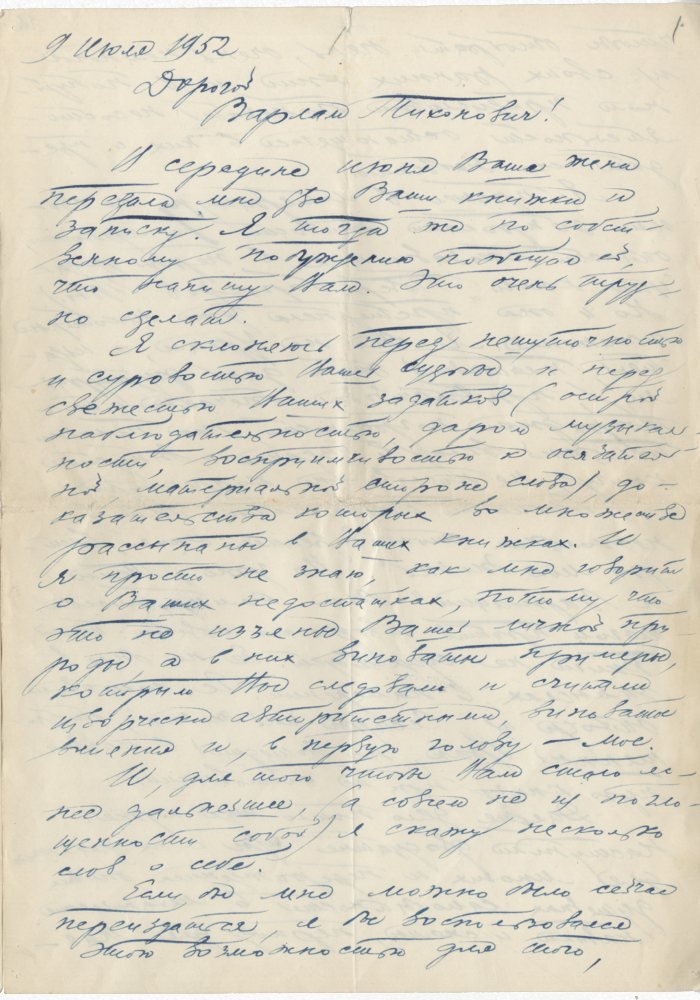 1.
9 июля 1952
Дорогой
Варлам Тихонович!
В середине июня Ваша жена
передала мне две Ваши книжки и
записку. Я тогда же по собст-
венному побуждению пообещал ей,
что напишу Вам. Это очень труд-
но сделать.
Я склоняюсь перед нешуточностью
и суровостью Вашей судьбы и перед
свежестью Ваших задатков (острой
наблюдательностью, даром музыкаль-
ности, восприимчивостью к осязатель-
ной, материальной стороне слова), до-
казательства которых во множестве
рассыпаны в Ваших книжках. И
я просто не знаю, как мне говорить
о Ваших недостатках, потому что
это не изъяны Вашей личной при
роды, а в них виноваты примеры,
которым Вы следовали и считали
творчески авторитетными, виноваты
влияния и, в первую голову – мое.
И, для того чтобы Вам стало яс-
нее дальнейшее, (а совсем не из погло-
щенности собой) я скажу несколько
слов о себе.
Если бы мне можно было сейчас
переиздаться, я бы воспользовался
этою возможностью для того,